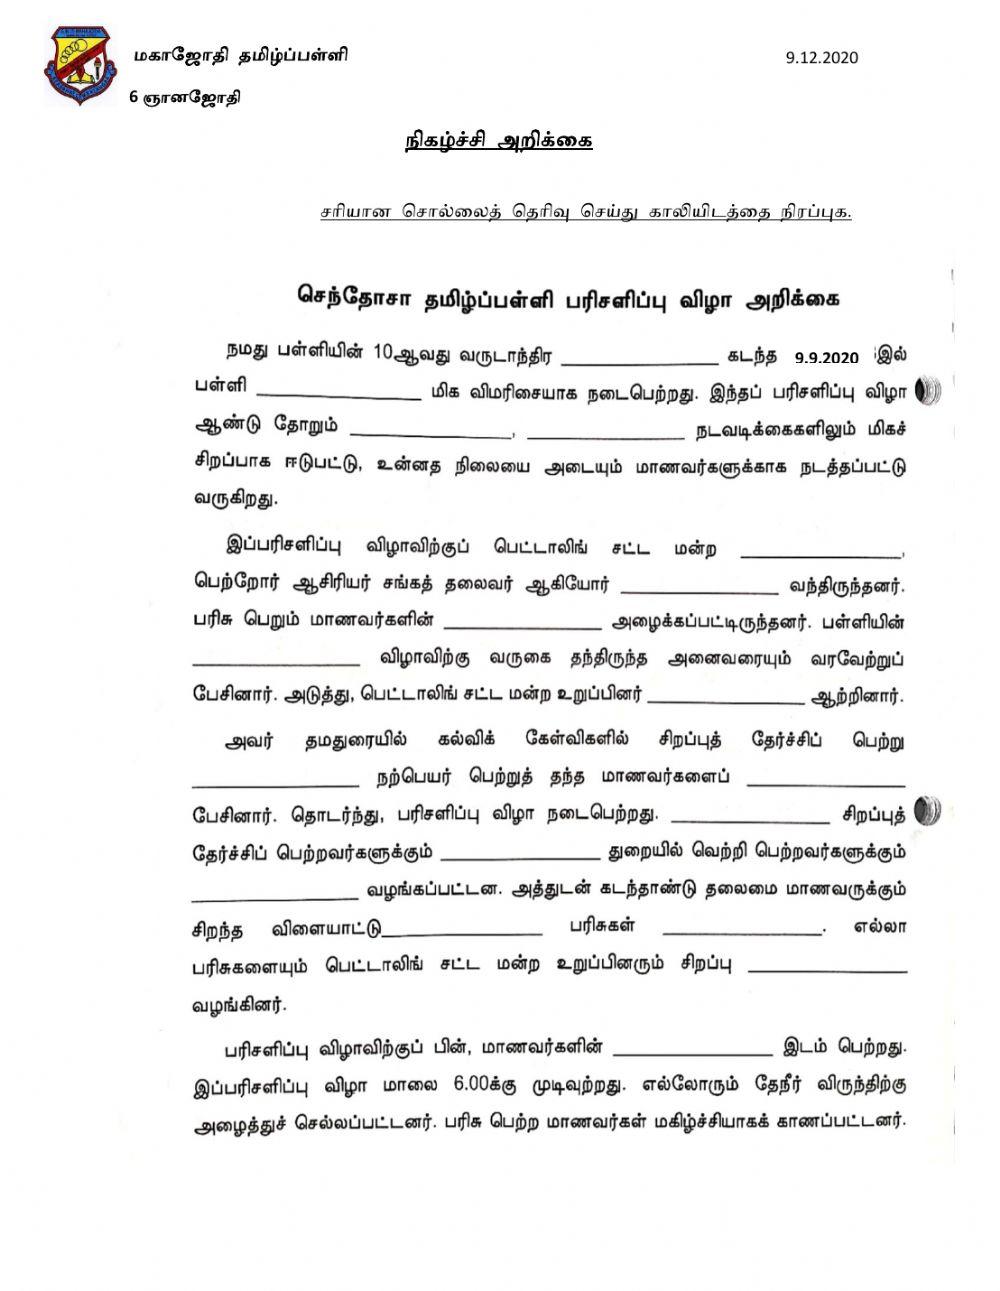 மகாஜோதி தமிழ்ப்பள்ளி 9.12.2020
6 ஞானஜோதி
நிகழ்ச்சி அறிக்கை
சரியான சொல்லைத் தெரிவு செய்து காலியிடத்தை நிரப்புக.
செந்தோசா தமிழ்ப்பள்ளி பரிசளிப்பு விழா அறிக்கை
நமது பள்ளியின் 10ஆவது வருடாந்திர ____________ கடந்த 9.9.2020 இல்
பள்ளி ____________ மிக விமரிசையாக நடைபெற்றது. இந்தப் பரிசளிப்பு விழா
ஆண்டு தோறும் ____________, ____________ நடவடிக்கைகளிலும் மிகச்
சிறப்பாக ஈடுபட்டு, உன்னத நிலையை அடையும் மாணவர்களுக்காக நடத்தப்பட்டு
வருகிறது.
இப்பரிசளிப்பு விழாவிற்குப் பெட்டாலிங் சட்ட மன்ற ____________,
பெற்றோர் ஆசிரியர் சங்கத் தலைவர் ஆகியோர் ____________ வந்திருந்தனர்.
பரிசு பெறும் மாணவர்களின் ____________ அழைக்கப்பட்டிருந்தனர். பள்ளியின்
____________ விழாவிற்கு வருகை தந்திருந்த அனைவரையும் வரவேற்றுப்
பேசினார். அடுத்து, பெட்டாலிங் சட்ட மன்ற உறுப்பினர் ____________ ஆற்றினார்.
அவர் தமதுரையில் கல்விக் கேள்விகளில் சிறப்புத் தேர்ச்சிப் பெற்று
____________ நற்பெயர் பெற்றுத் தந்த மாணவர்களைப் ____________
பேசினார். தொடர்ந்து, பரிசளிப்பு விழா நடைபெற்றது. ____________ சிறப்புத்
தேர்ச்சிப் பெற்றவர்களுக்கும் ____________ துறையில் வெற்றி பெற்றவர்களுக்கும்
____________ வழங்கப்பட்டன. அத்துடன் கடந்தாண்டு தலைமை மாணவருக்கும்
சிறந்த விளையாட்டு____________ பரிசுகள் ____________. எல்லா
பரிசுகளையும் பெட்டாலிங் சட்ட மன்ற உறுப்பினரும் சிறப்பு ____________
வழங்கினர்.
பரிசளிப்பு விழாவிற்குப் பின், மாணவர்களின் ____________ இடம் பெற்றது.
இப்பரிசளிப்பு விழா மாலை 6.00க்கு முடிவுற்றது. எல்லோரும் தேநீர் விருந்திற்கு
அழைத்துச் செல்லப்பட்டனர். பரிசு பெற்ற மாணவர்கள் மகிழ்ச்சியாகக் காணப்பட்டனர்.